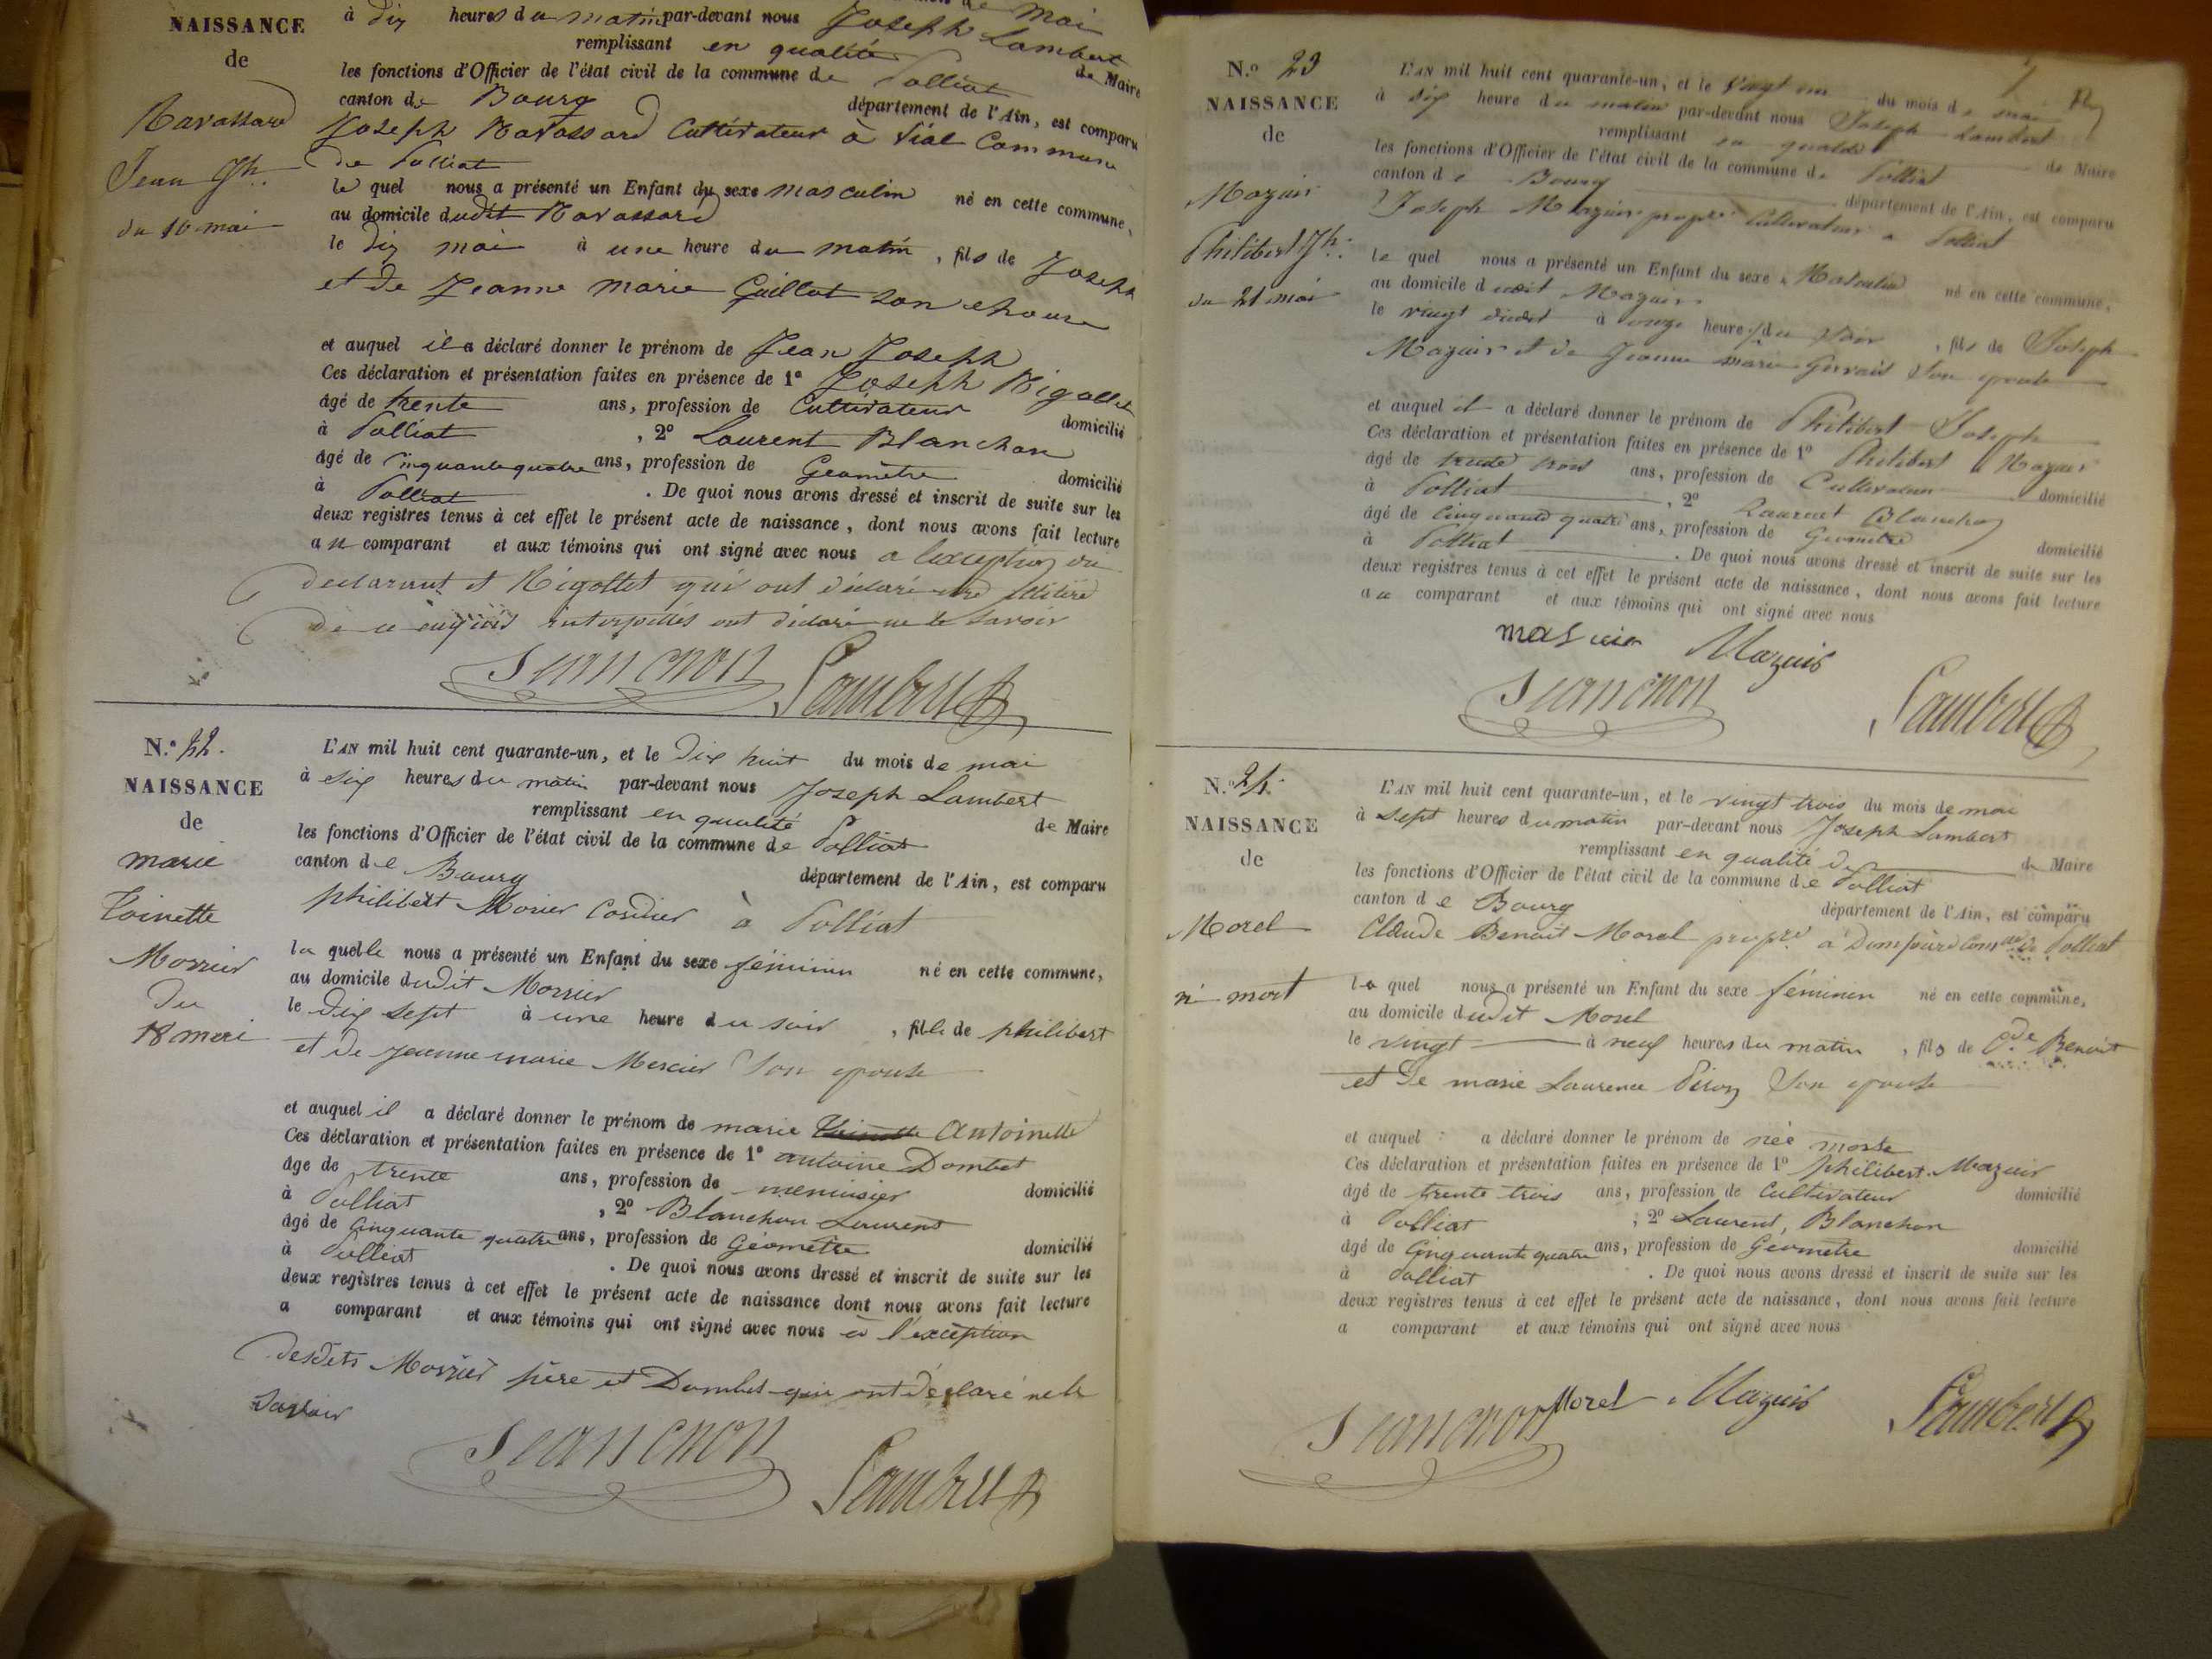 NAISSANCE
de
Ravassard
Jean Jh.
du 10 mai
à dix heures du matin par-devant nous Joseph Lambert
remplissant en qualité de Maire
les fonctions d'Officier de l'état civil de la commune de Polliat
canton de Bourg département de l'Ain, est comparu
Joseph Ravassard Cultivateur à Vial Commune
de Polliat
le quel nous a présenté un Enfant du sexe masculin né en cette commune,
au domicile dudit Ravassard
le dix mai à une heure du matin, fils de Joseph
et de Jeanne marie Guillot son épouse
et auquel il a déclaré donner le prénom de Jean Joseph
Ces déclaration et présentation faites en présence de 1º Joseph Rigollet
âgé de trente ans, profession de Cultivateur domicilié
à Polliat, 2º Laurent Blanchon
âgé de cinquante quatre ans, profession de Géomètre domicilié
à Polliat. De quoi nous avons dressé et inscrit de suite sur les
deux registres tenus à cet effet le présent acte de naissance, dont nous avons fait lecture
au comparant et aux témoins qui ont signé avec nous a l'exception du
déclarant et Rigollet qui ont déclaré
de ce interpellés ont déclaré ne le savoir
Blanchon Lambert
N.º 22.
NAISSANCE
de
marie
Toinette
Morrier
du
18 mai
L'AN mil huit cent quarante-un, et le dix huit du mois de mai
à six heures du matin par-devant nous Joseph Lambert
remplissant en qualité de Maire
les fonctions d'Officier de l'état civil de la commune de Polliat
canton de Bourg département de l'Ain, est comparu
philibert Morier Cordier à Polliat
la quelle nous a présenté un Enfant du sexe féminin né en cette commune,
au domicile dudit Morrier
le dix sept à une heure du soir, fille de philibert
et de jeanne marie Mercier son épouse
et auquel il a déclaré donner le prénom de marie Toinette Antoinette
Ces déclaration et présentation faites en présence de 1º antoine Dombet
âge de trente ans, profession de menuisier domicilié
à Polliat, 2º Blanchon Laurent
âgé de Cinquante quatre ans, profession de Géomètre domicilié
à Polliat. De quoi nous avons dressé et inscrit de suite sur les
deux registres tenus à cet effet le présent acte de naissance dont nous avons fait lecture
a comparant et aux témoins qui ont signé avec nous à l'exception
desdits Morrier père et Dombet qui ont déclaré ne le
savoir
Blanchon Lambert
N.º 23
NAISSANCE
de
Mazuir
Philibert Jh.
du 21 mai
L'AN mil huit cent quarante-un, et le vingt un du mois de mai
à six heure du matin par-devant nous Joseph Lambert
remplissant en qualité de Maire
les fonctions d'Officier de l'état civil de la commune de Polliat
canton de Bourg département de l'Ain, est comparu
Joseph Mazuir propre Cultivateur a Polliat
le quel nous a présenté un Enfant du sexe Masculin né en cette commune,
au domicile dudit Mazuir
le vingt dudit à onze heures du soir, fils de Joseph
Mazuir et de Jeanne marie Gervais Son épouse
et auquel il a déclaré donner le prénom de Philibert Joseph
Ces déclaration et présentation faites en présence de 1º Philibert Mazuir
âgé de trente trois ans, profession de Cultivateur domicilié
à Polliat, 2º Laurent Blanchon
âgé de Cinquante quatre ans, profession de Géomètre domicilié
à Polliat. De quoi nous avons dressé et inscrit de suite sur les
deux registres tenus à cet effet le présent acte de naissance, dont nous avons fait lecture
au comparant et aux témoins qui ont signé avec nous
Mazuir
Blanchon Lambert
N.º 24.
NAISSANCE
de
Morel
né mort
L'AN mil huit cent quarante-un, et le vingt trois du mois de mai
à sept heures du matin par-devant nous Joseph Lambert
remplissant en qualité de de Maire
les fonctions d'Officier de l'état civil de la commune de Polliat
canton de Bourg département de l'Ain, est comparu
Claude Benoit Morel propre à de Polliat
le quel nous a présenté un Enfant du sexe féminin né en cette commune,
au domicile dudit Morel
le vingt à neuf heures du matin, fils de Cde Benoit
et de marie Laurence Péron Son épouse
et auquel a déclaré donner le prénom de née morte
Ces déclaration et présentation faites en présence de 1º philibert Mazuir
âgé de trente trois ans, profession de Cultivateur domicilié
à Polliat; 2º Laurent, Blanchon
âgé de Cinquante quatre ans, profession de Géomètre domicilié
à Polliat. De quoi nous avons dressé et inscrit de suite sur les
deux registres tenus à cet effet le présent acte de naissance, dont nous avons fait lecture
a comparant et aux témoins qui ont signé avec nous
Blanchon Morel Mazuir Lambert